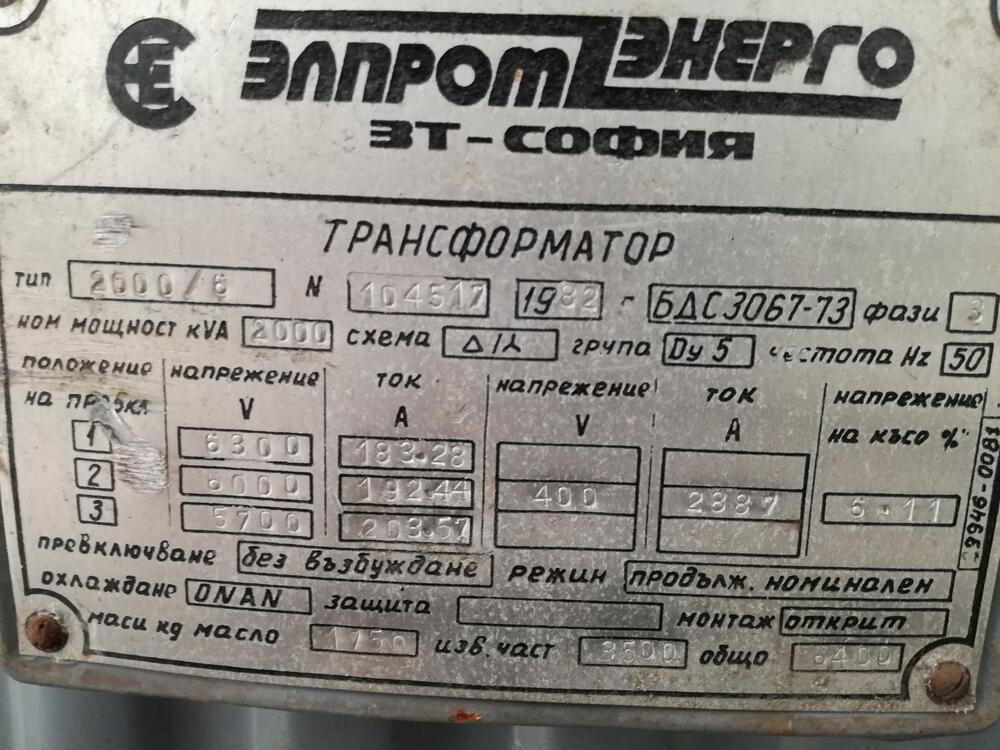 ЭЛПРОМ ЭНЕРГО
ЗТ-СОФИЯ
ТРАНСФОРМАТОР
тип 2000/6 N 104517 1982 г БДС 3067-73 фази 3
ном мощност kVA 2000 схема Δ/⅄ група Dy 5 честота Hz 50
положение на пробка напрежение V ток A напрежение V ток A напрежение на късо %
1 6300 183.28
2 6000 192.44 400 2887 6.11
3 5700 203.57
-9946-0081
превключване без възбуждане режим продълж. номинален
охлаждане ONAN защита монтаж открит
маси кg масло 1750 изв. част 3500 общо 6400